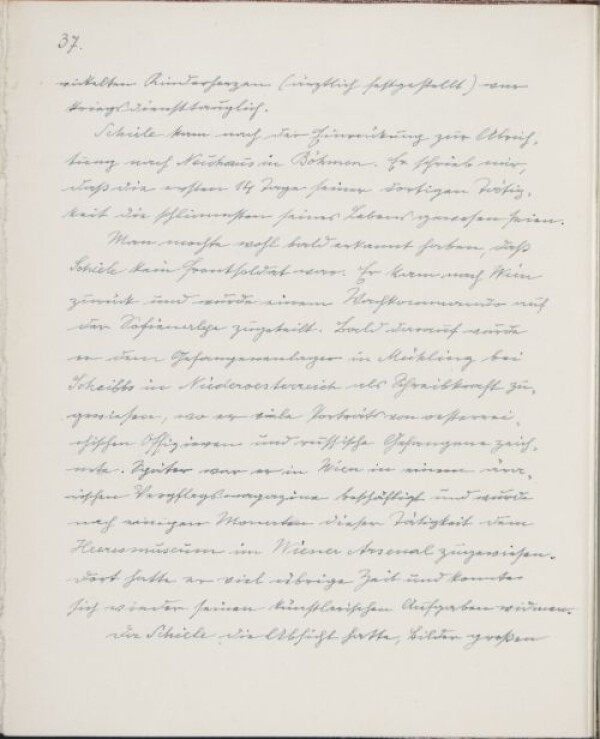 37.
wickelten Kinderherzen (ärztlich festgestellt) war
kriegsdiensttauglich.
Schiele kam nach der Einrückung zur Abrich-
tung nach Neuhaus in Böhmen. Er schrieb mir,
daß die ersten 14 Tage seiner dortigen Tätig-
keit die schlimmsten seines Lebens gewesen seien.
Man mochte wohl bald erkannt haben, daß
Schiele kein Frontsoldat war. Er kam nach Wien
zurück und wurde einem Wachkommando auf
der Sofienalpe zugeteilt. Bald darauf wurde
er dem Gefangenenlager in Mühling bei
Scheibbs in Niederoesterreich als Schreibkraft zu-
gewiesen, wo er viele Porträts von oesterrei-
chischen Offizieren und russische Gefangene zeich-
nete. Später war er in Wien in einem ära-
rischen Verpflegsmagazine beschäftigt und wurde
nach einigen Monaten dieser Tätigkeit dem
Heeresmuseum im Wiener Arsenal zugewiesen.
Dort hatte er viel übrige Zeit und konnte
sich wieder seinen künstlerischen Aufgaben widmen.
Da Schiele die Absicht hatte, Bilder großen